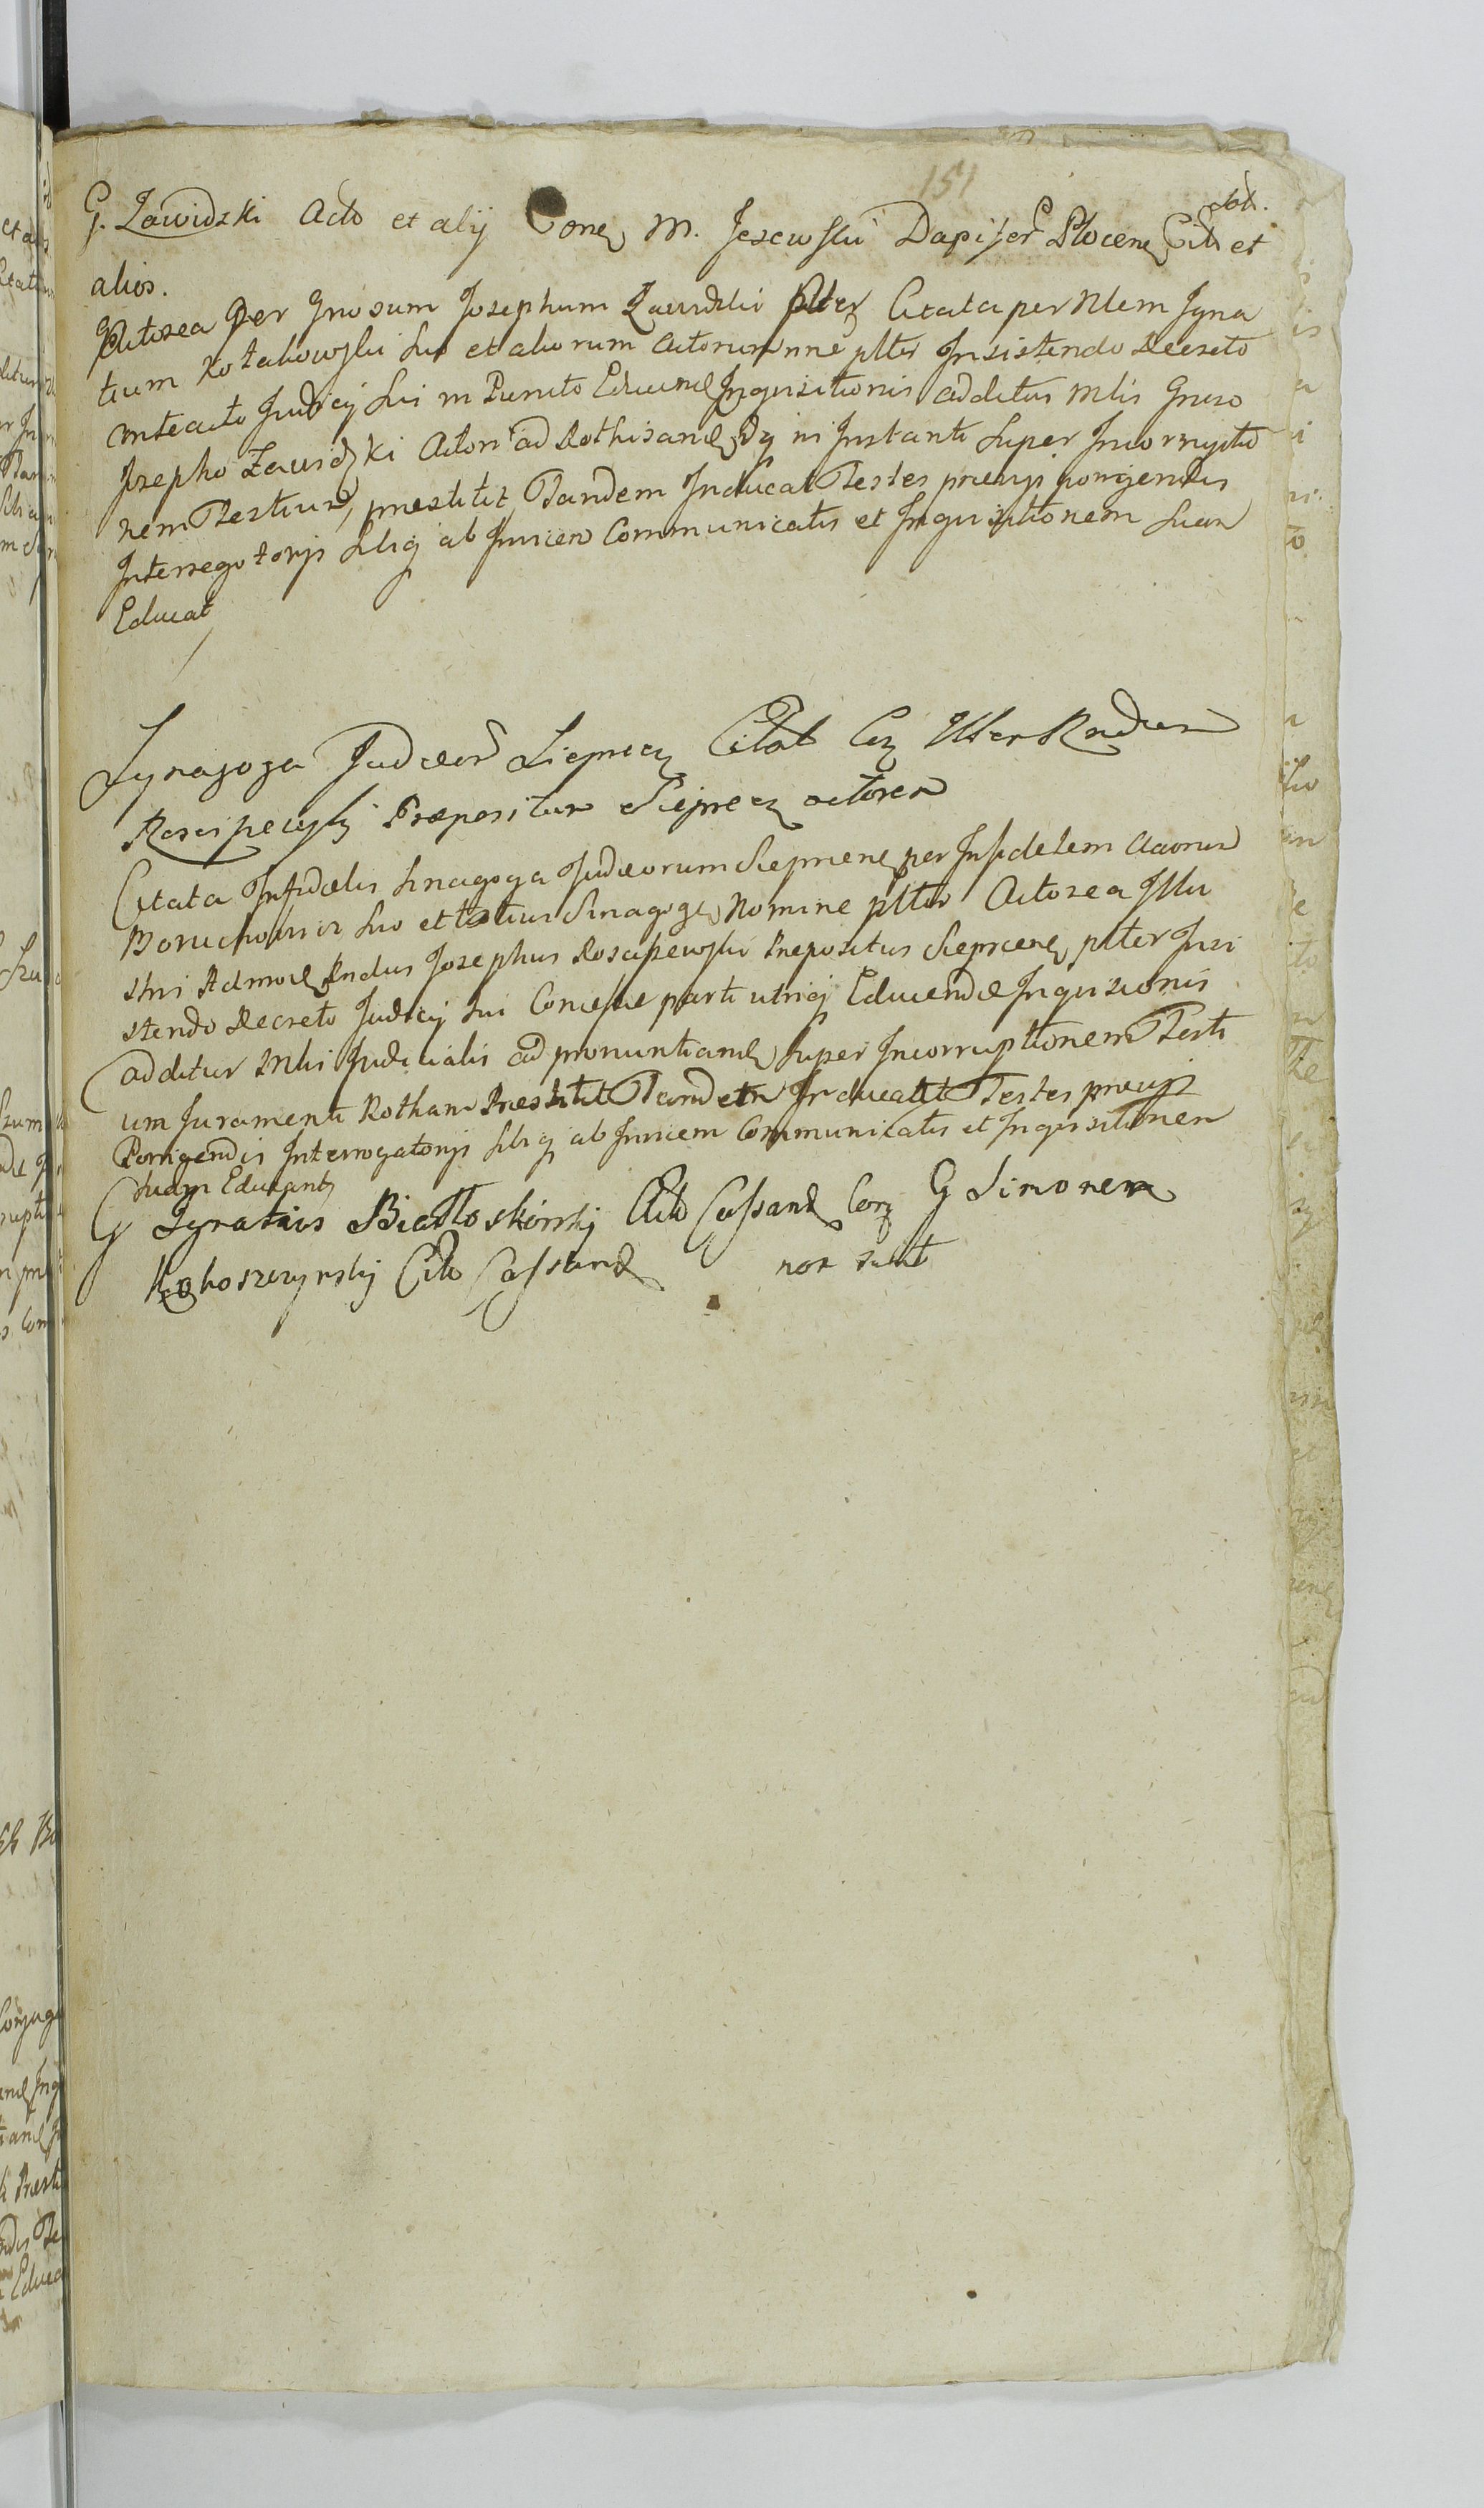 151
G. Zawidzki Acto et alij Cone M. Jezewski Dapifer Plocene Cito et
alios.
Actorea Per Gnosum Josephum Zawidzki plter Citata per Nlem Igna
tium Kotakowski Suo et aliorum Actorum nne plter Insistendo Decreto
anteacto Judicij Sui in Puncto Educend Inquisitionis additus Mlis Gnoso
Josepho Zawidzki Actori ad Rothisand dq in Instanti Super Incorruptio
nem Testium, prestitit, Tandem Inducat Testes prævijs porrigendis
Interrogotorijs Sibiq ab Invicem Communicatis et Inquisitionem Suam
Educat
Synagoga Judæor Sieprecz Citat Coz Illter Rndum
Rosciszewski Præpositum Sieprecz actorem
Citata Infidelis Sinagoga Judæorum Siepricene per Infidelem Aaronem
Boruchowicz Suo et totius Sinagoge Nomine plter Actorea Illu
stris Admod Rndus Josephus Rosciszewski Prepositus Sieprcene plter Insi
stendo Decreto Judicij Sui Concesse parti utriq Educendæ Inquisicionis
additur Mlis Judicialis ad pronuntiand Super Incorruptionem Testi
um Juramenti Rotham Prestitit Tandem Inducat Testes prævijs
Porrigendis Interrogatorijs Sibiq ab Invicem Communicatis et Inquisitionem
Suam Educant
G Ignatius Białłoskórskij Acto Cassand Corz G Simonem
Kokoszczynskij Cito Cassand non sunt